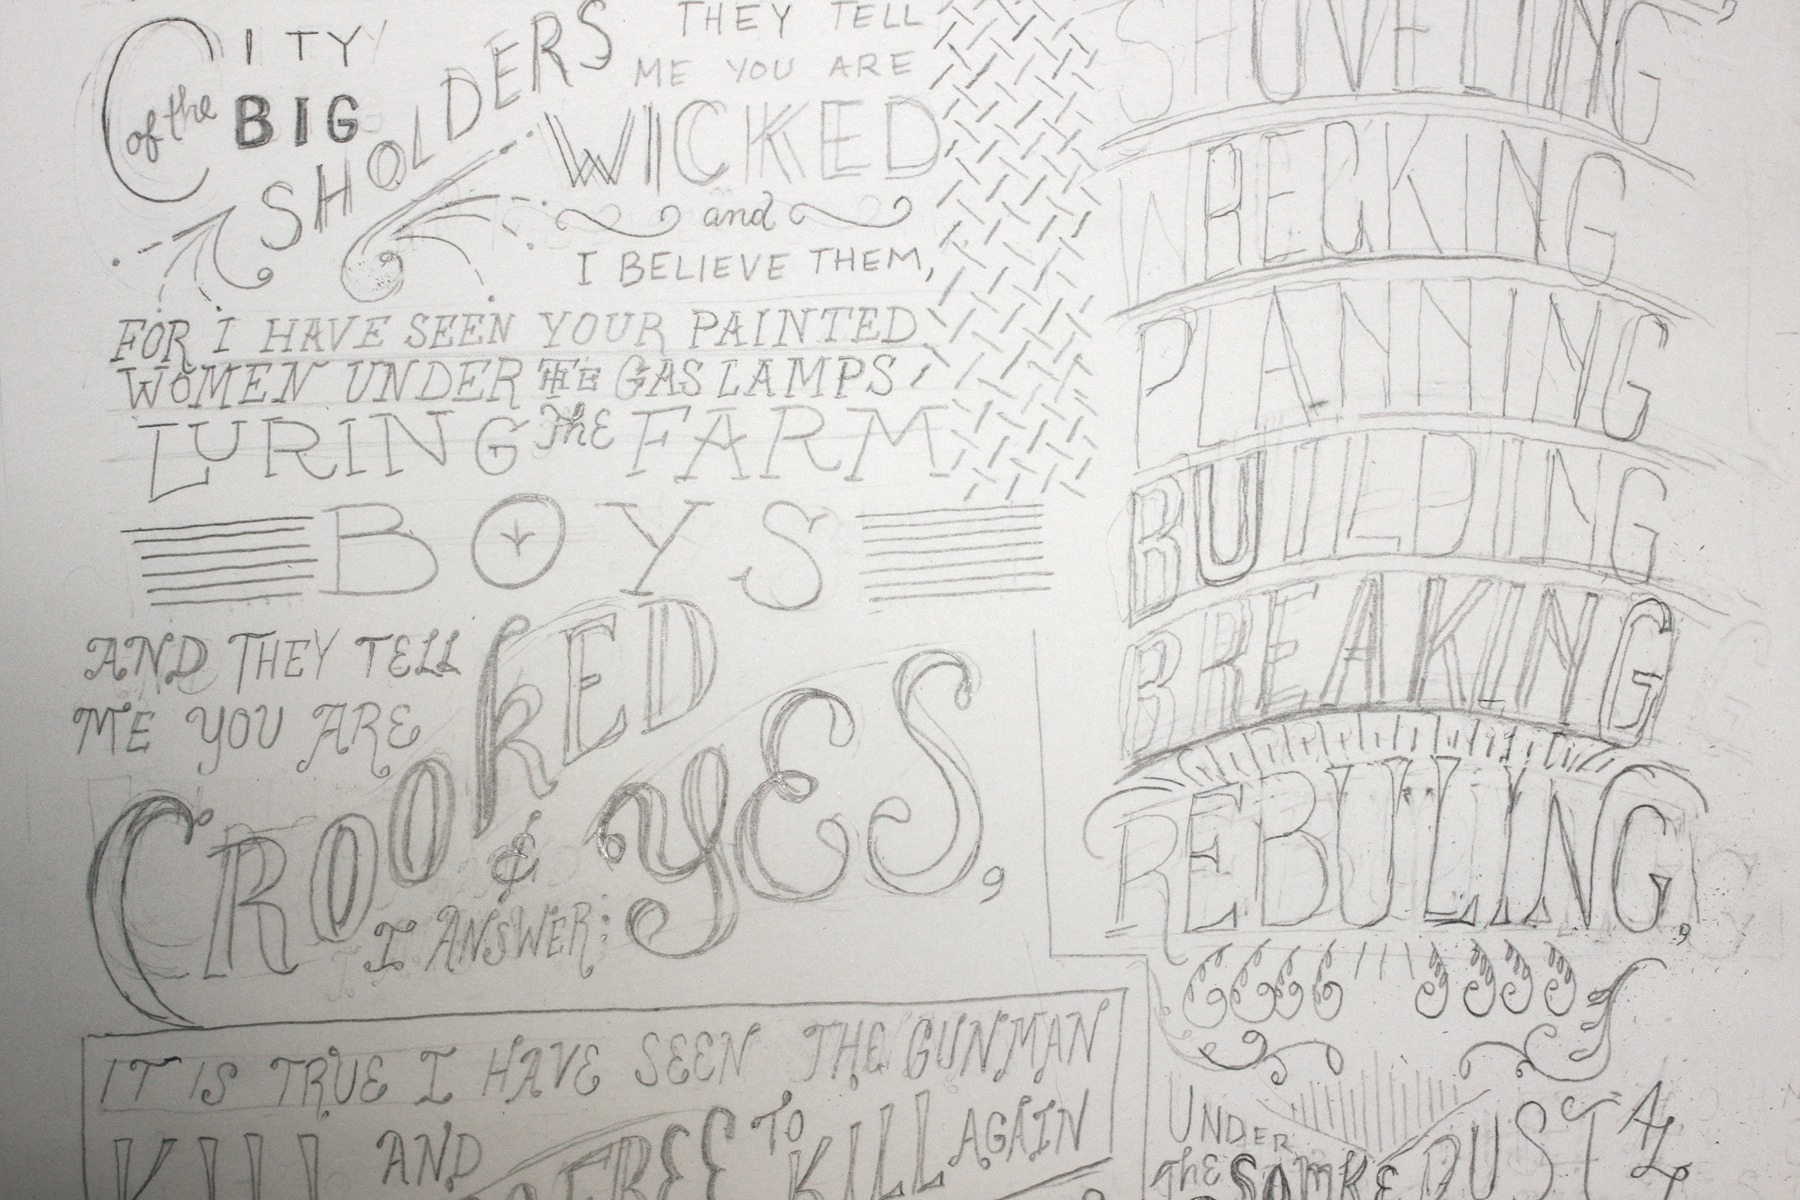 CITY
of the BIG
SHOLDERS
THEY TELL
ME YOU ARE
WICKED
and
I BELIEVE THEM,
FOR I HAVE SEEN YOUR PAINTED
WOMEN UNDER THE GAS LAMPS
LURING the FARM
BOYS
AND THEY TELL
ME YOU ARE
CROOKED
&
I ANSWER:
YES,
IT IS TRUE I HAVE SEEN THE GUNMAN
KILL AND GO FREE TO KILL AGAIN
SHOVELING
WRECKING
PLANNING
BUILDING
BREAKING
REBULING,
UNDER
the SOMKE DUST AL